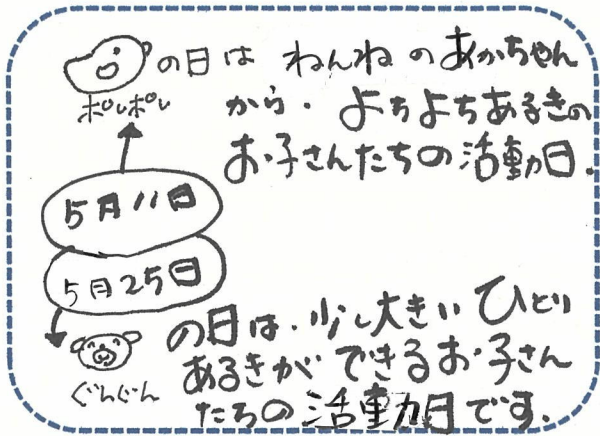 の日は ねんねのあかちゃん
ポレポレ
から・よちよちあるきの
お子さんたちの活動日.
5月11日
5月25日
の日は・少し大きい ひとり
あるきが できるお子さん
ぐんぐん
たちの活動日です.